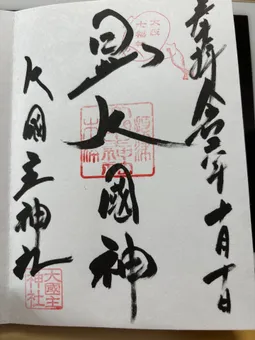 奉拝 令和 年十月十日
大阪七福
日出大國神
大國主神社
大國主神社